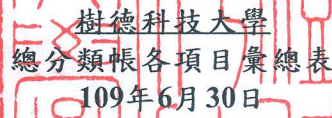 樹德科技大學
總分類帳各項目彙總表
109年6月30日